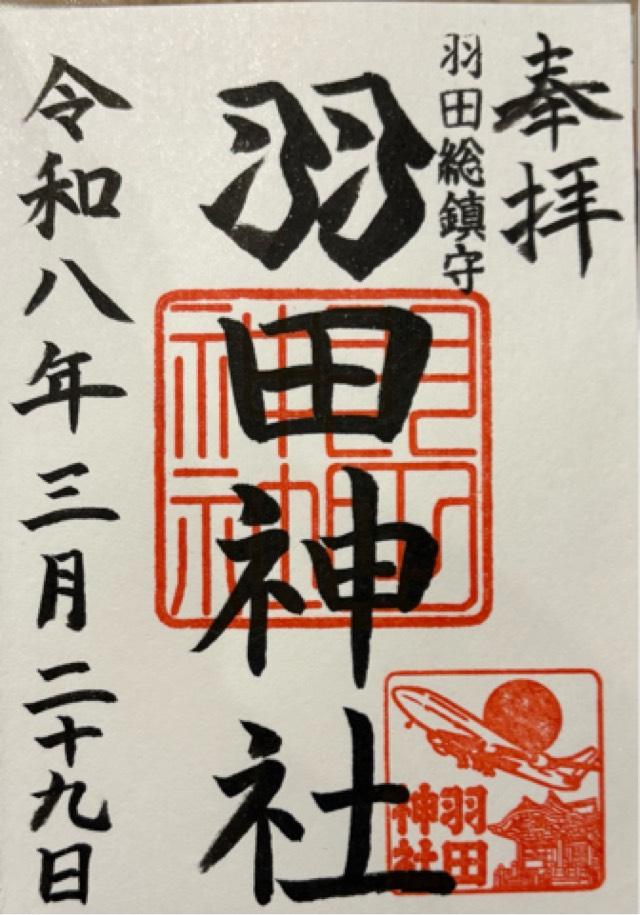 奉拝
羽田総鎮守
羽田神社
羽田
神社
令和八年三月二十九日